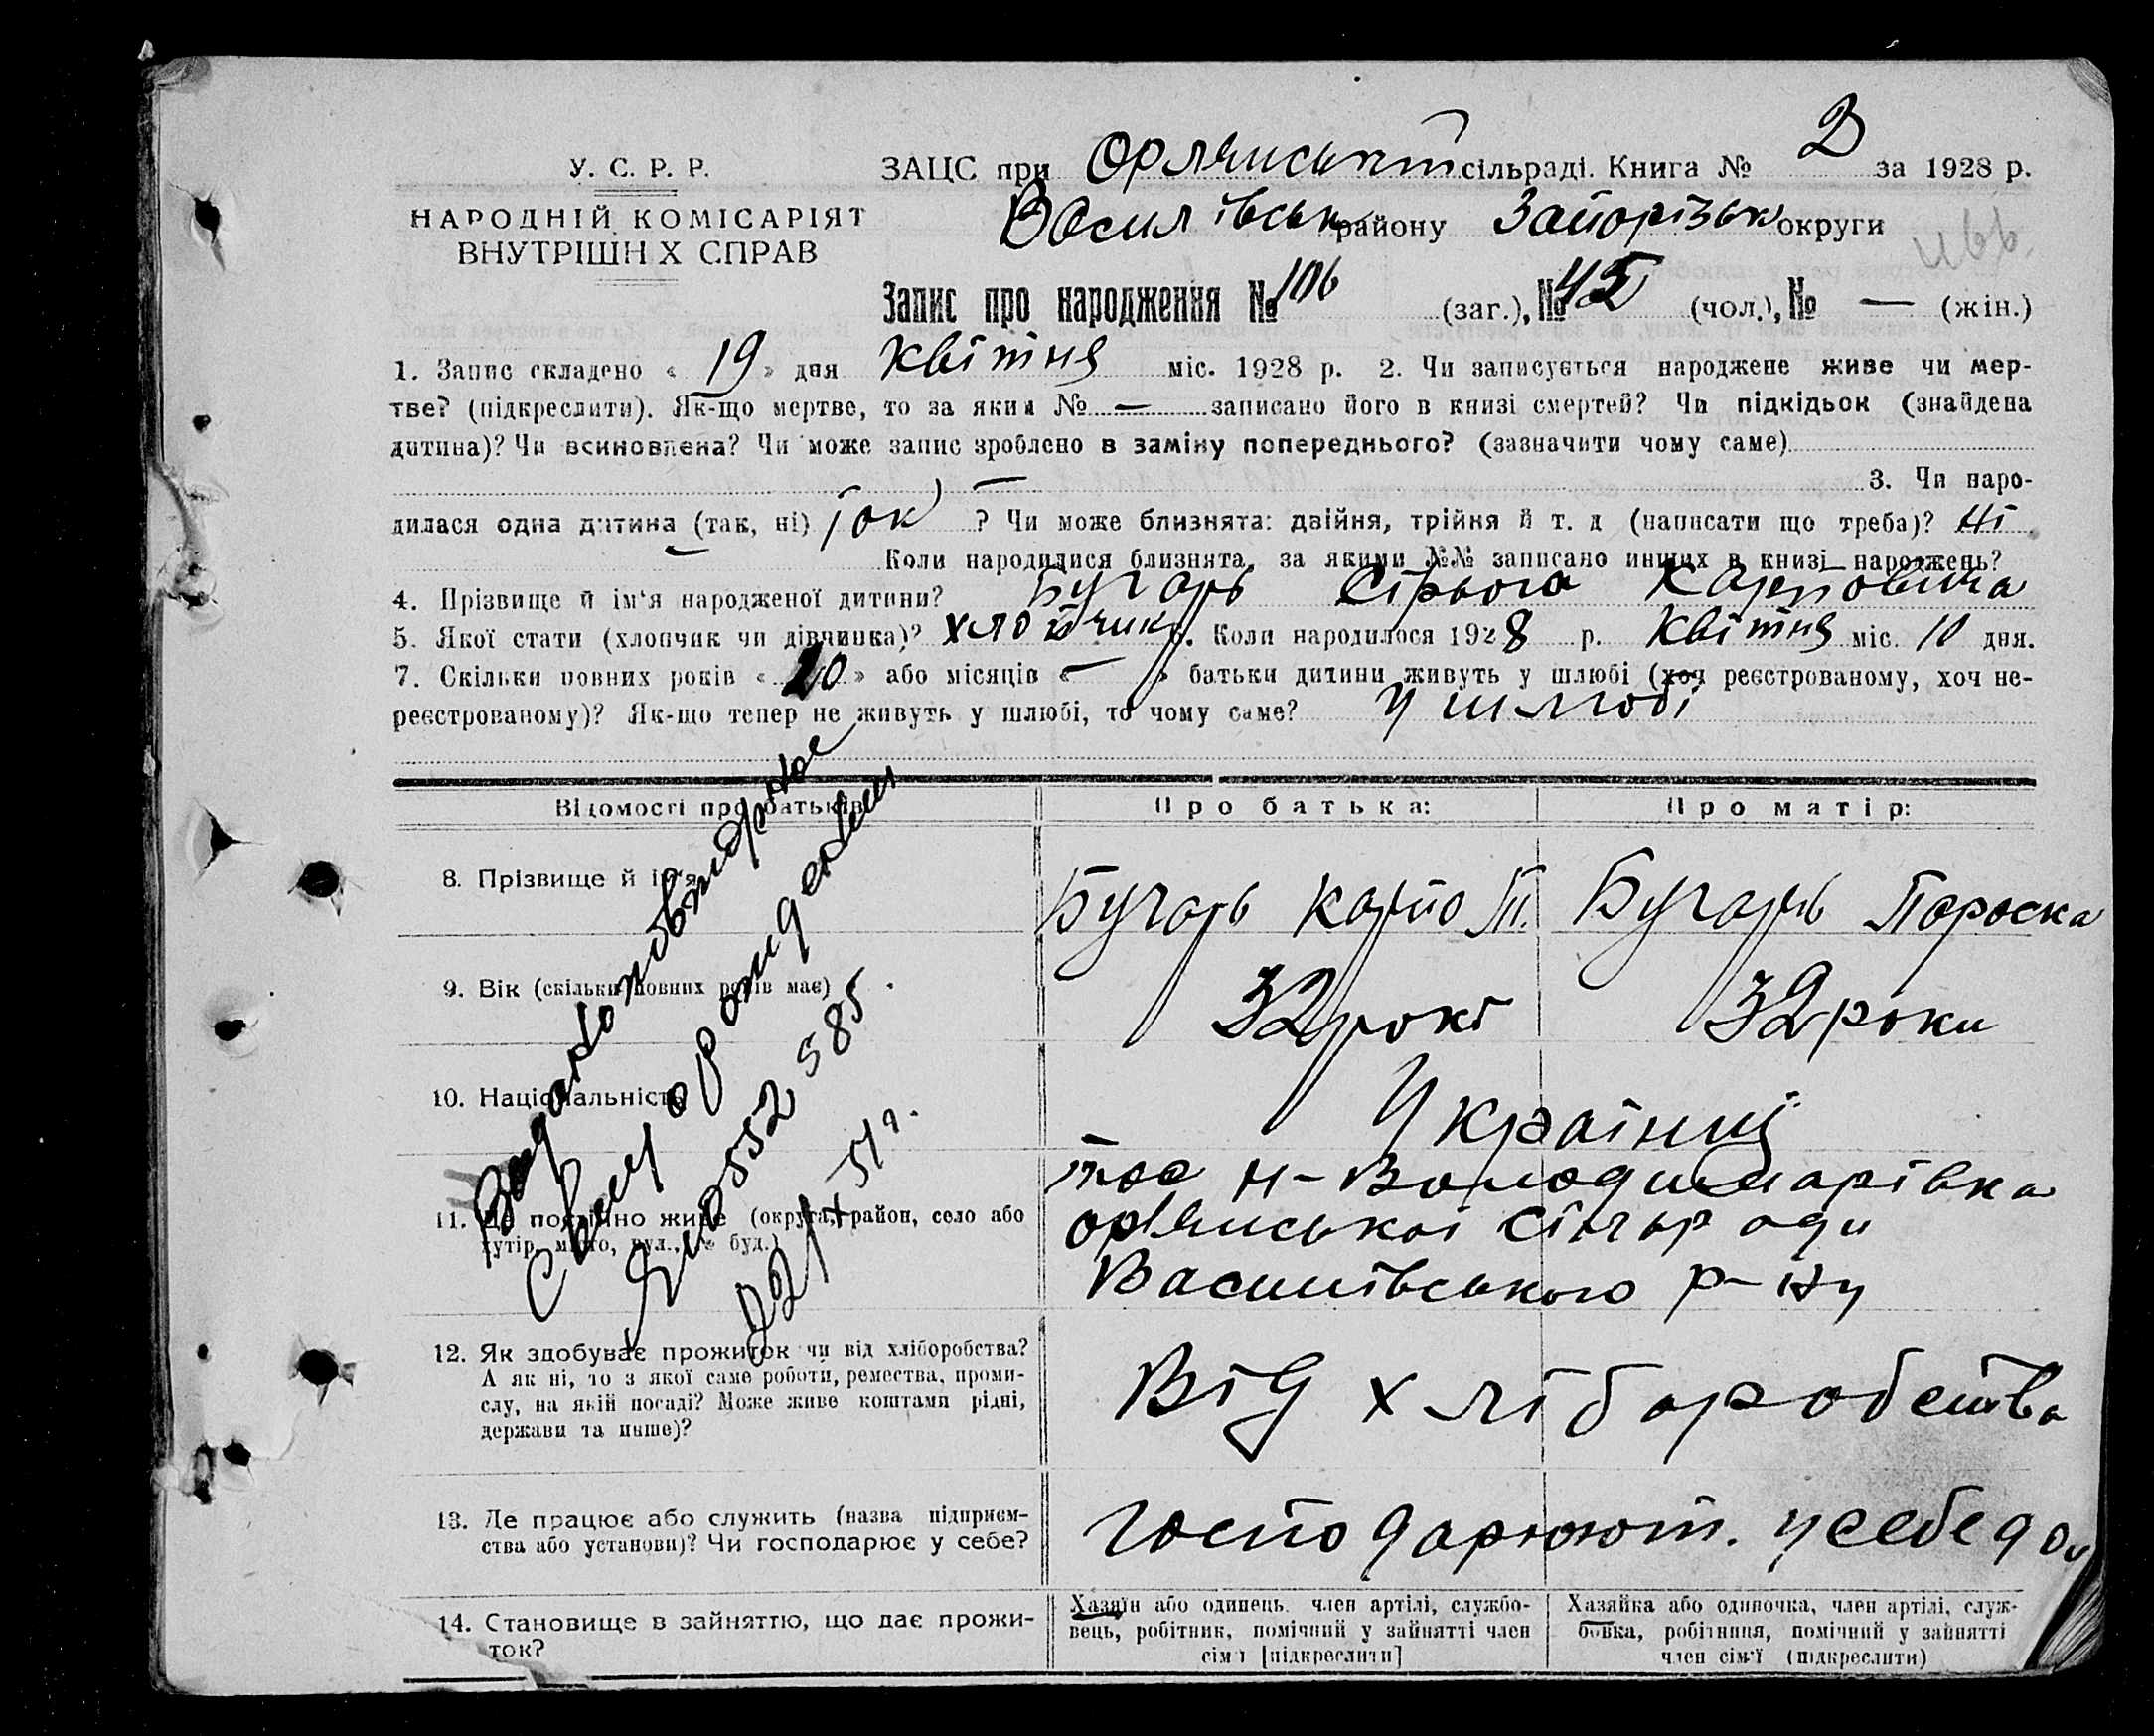 У. С. Р. Р.
НАРОДНІЙ КОМІСАРІЯТ
ВНУТРІШН Х СПРАВ
ЗАЦС при Орлянській сільраді. Книга № 2 за 1928 р.
Василівськ району Запорізьк округи
Запис про народження № 106 (заг.), № 45 (чол.), № — (жін.)
1. Запис складено « 19 » дня квітня міс. 1928 р. 2. Чи записується народжене живе чи мер-
тве? (підкреслити). Як-що мертве, то за яким № — записано його в книзі смертей? Чи підкідьок (знайдена
дитина)? Чи всиновлена? Чи може запис зроблено в заміну попереднього? (зазначити чому саме)
— 3. Чи наро-
дилася одна дитина (так, ні) так ? Чи може близнята: двійня, трійня й т. д (написати що треба)? Ні
— Коли народилися близнята, за якими №№ записано инших в книзі народжень?
4. Прізвище й ім'я народженої дитини? Бугарь Сірьога Карпович
5. Якої стати (хлопчик чи дівчинка)? хлопчик 6. Коли народилося 1928 р. квітня міс. 10 дня.
7. Скільки повних років « 10 » або місяців « — » батьки дитини живуть у шлюбі (хоч реєстрованому, хоч не-
реєстрованому)? Як-що тепер не живуть у шлюбі, то чому саме? у шлюбі
Відомості про батьків
Про батька:
Про матір:
8. Прізвище й ім'я
Бугарь Карпо П.
Бугарь Параска
9. Вік (скільки повних років має)
32 рокі
32 роки
10. Національність
Українці
11. Де постійно живе (округа, район, село або
хутір, місто, вул., № буд.)
пос Н-Володимарівка
орлянської сільради
Василівського р-ну
12. Як здобуває прожиток чи від хліборобства?
А як ні, то з якої саме роботи, ремества, проми-
слу, на якій посаді? Може живе коштами рідні,
держави та инше)?
Від хліборобства
13. Де працює або служить (назва підприєм-
ства або установи)? Чи господарює у себе?
Господарюют. у себе до
14. Становище в зайняттю, що дає прожи-
ток?
Хазяїн або одинець, член артілі, службо-
вець, робітник, помічний у зайнятті член
сім'ї [підкреслити]
Хазяйка або одиночка, член артілі, служ-
бовка, робітниця, помічний у зайнятті
член сім'ї (підкреслити)
Выдано повторное
Свид о рождении
552585